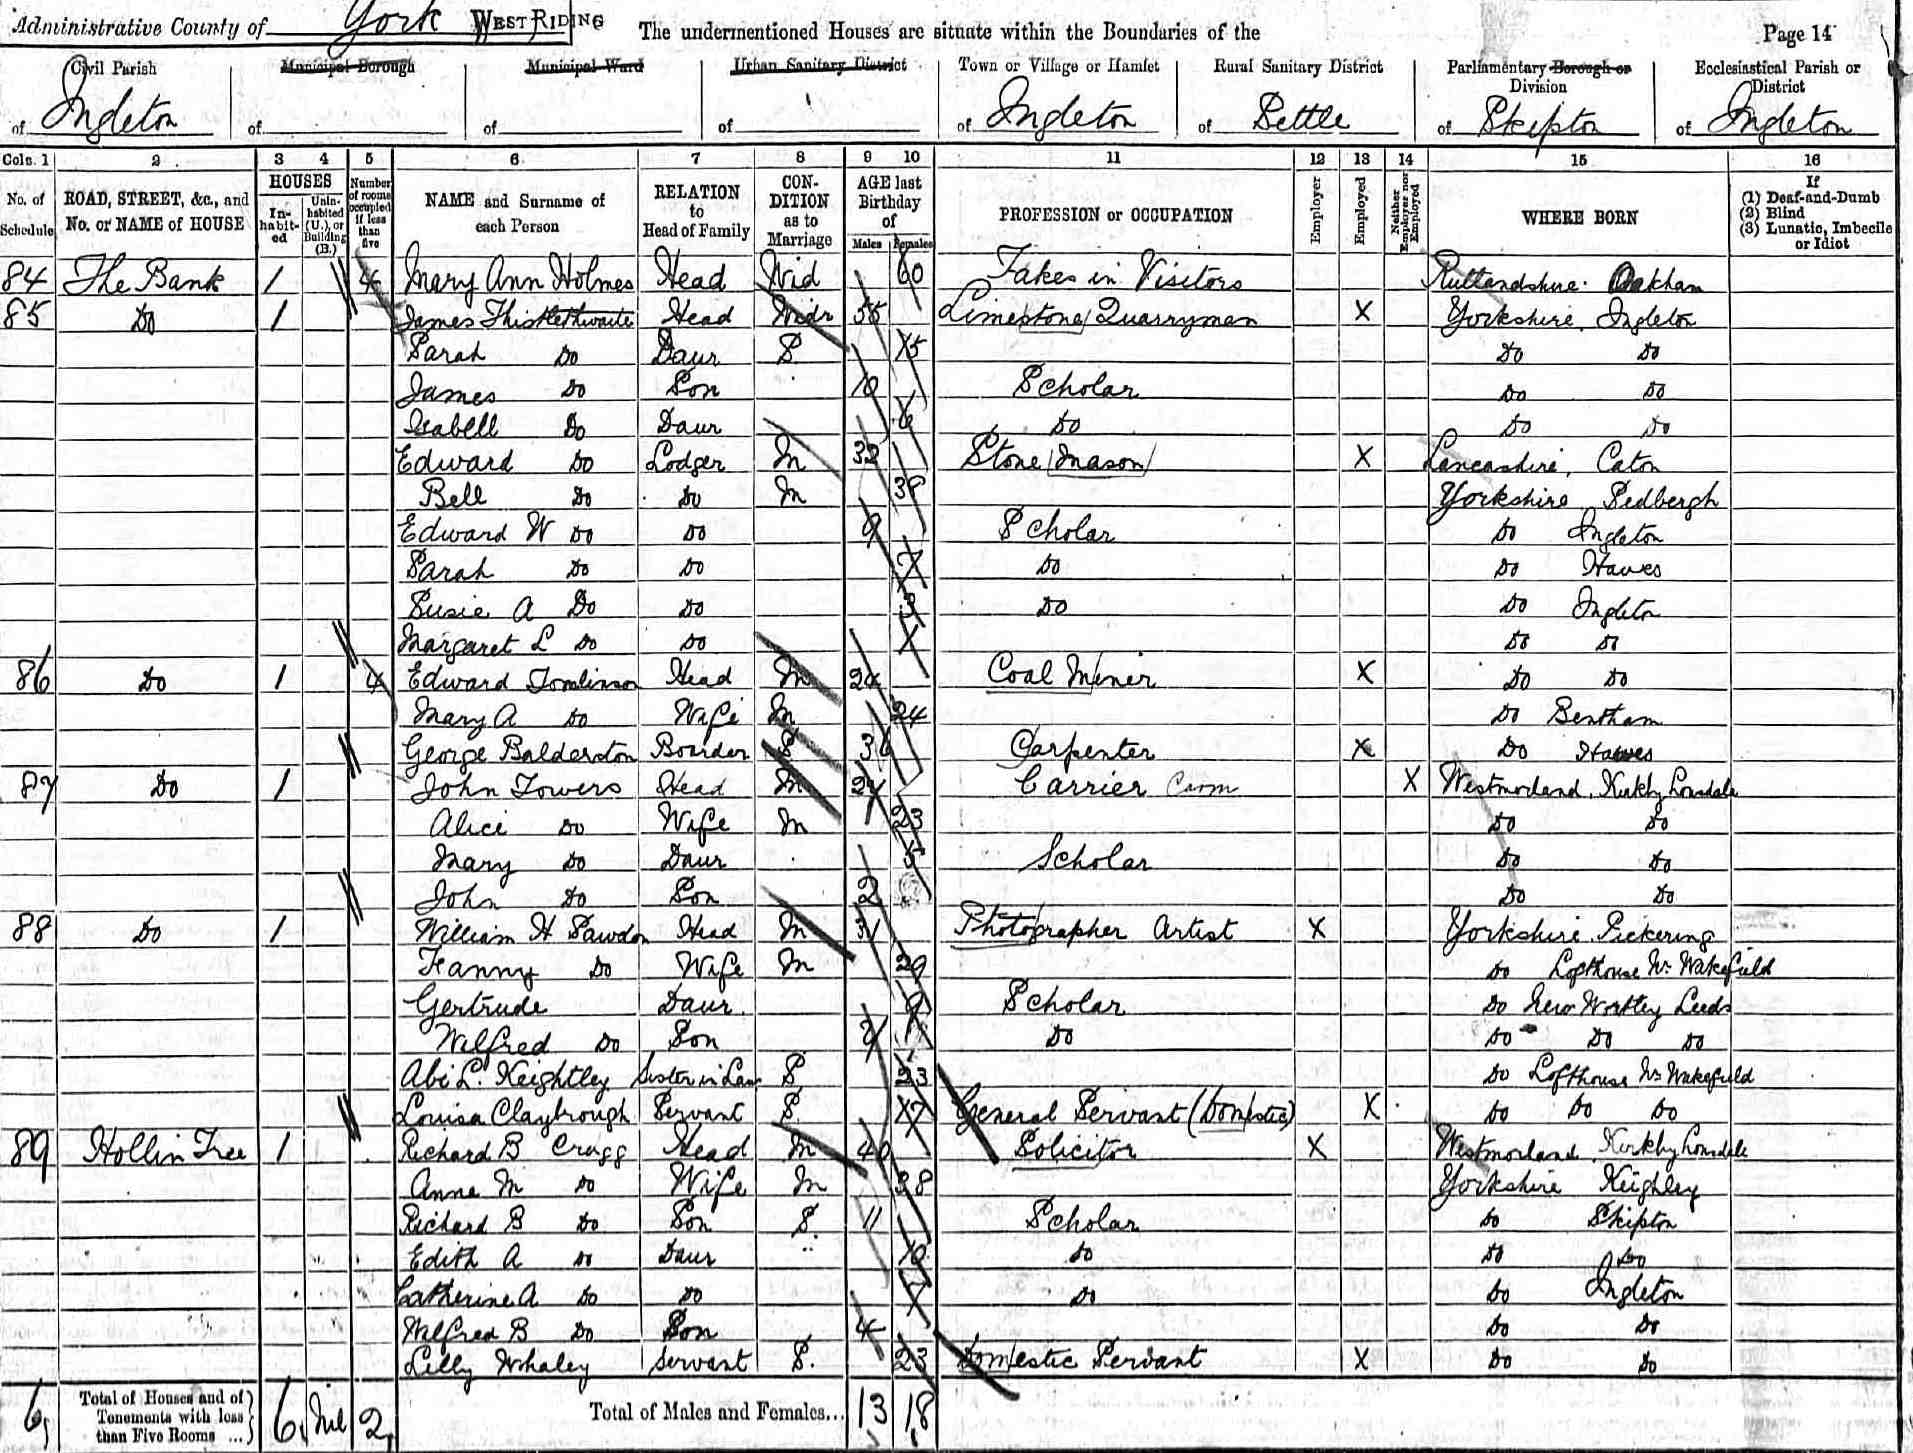 Administrative County of York WEST RIDING The undermentioned Houses are situate within the Boundaries of the Page 14
Civil Parish Municipal Borough Municipal Ward Urban Sanitary District Town or Village or Hamlet Rural Sanitary District Parliamentary Borough or Division Ecclesiastical Parish or District
of Ingleton of of of of Ingleton of Settle of Skipton of Ingleton
Cols. 1 2 3 4 5 6 7 8 9 10 11 12 13 14 15 16
No. of Schedule ROAD, STREET, &c., and No. or NAME of HOUSE HOUSES Inhabited Uninhabited (U.), or Building (B.) Number of rooms occupied if less than five NAME and Surname of each Person RELATION to Head of Family CONDITION as to Marriage AGE last Birthday of Males Females PROFESSION or OCCUPATION Employer Employed Neither Employer nor Employed WHERE BORN If (1) Deaf-and-Dumb (2) Blind (3) Lunatic, Imbecile or Idiot
84 The Bank 1 4 Mary Ann Holmes Head Wid 60 Takes in Visitors Ruttandshire Oakham
85 Do 1 James Thistlethwaite Head Widr 55 Limestone Quarryman X Yorkshire, Ingleton
Sarah Do Daur S 15 Do Do
James Do Son 10 Scholar Do Do
Isabell Do Daur 6 Do Do Do
Edward Do Lodger M 32 Stone Mason X Lancashire, Caton
Bell Do Do M 38 Yorkshire Sedbergh
Edward W Do Do 9 Scholar Do Ingleton
Sarah Do Do 7 Do Do Hawes
Susie A Do Do 3 Do Do Ingleton
Margaret L Do Do 1 Do Do
86 Do 1 4 Edward Tomlinson Head M 24 Coal Miner X Do Do
Mary A Do Wife M 24 Do Bentham
George Balderston Boarder S 36 Carpenter X Do Hawes
87 Do 1 John Towers Head M Carrier X Westmorland, Kirkby Lonsdale
Alice Do Wife M 23 Do Do
Mary Do Daur 5 Scholar Do Do
John Do Son 2 Do Do
88 Do 1 William H Sawdon Head M 31 Photographer Artist X Yorkshire Pickering
Fanny Do Wife M 29 Do Lofthouse Nr Wakefield
Gertrude Daur. 9 Scholar Do New Wortley Leeds
Wilfred Do Son Do Do Do Do
Abi L. Keightley Sister in Law S 23 Do Lofthouse Nr Wakefield
Louisa Claybrough Servant S 17 General Servant (Domestic) X Do Do Do
89 Hollin Tree 1 Richard B Cragg Head M 40 Solicitor X Westmorland Kirkby Lonsdale
Anne M Do Wife M 38 Yorkshire Keighley
Richard B Do Son S. 11 Scholar Do Skipton
Edith A Do Daur 10 Do Do Do
Catherine A Do Do 7 Do Do Ingleton
Wilfred B Do Son 4 Do Do
Lilly Whaley Servant S. 23 Domestic Servant X Do Do
6 Total of Houses and of Tenements with less than Five Rooms ... 6 Nil 2 Total of Males and Females... 13 18